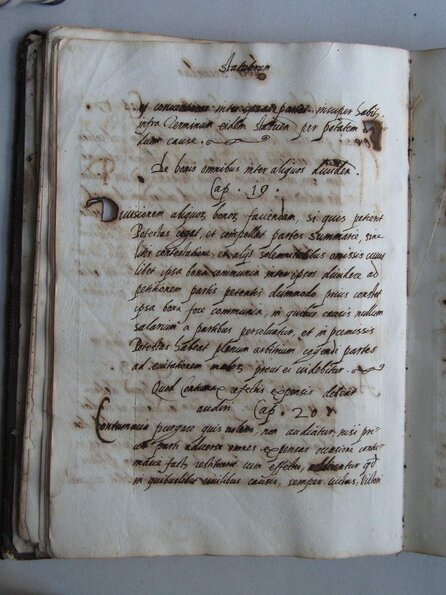 Statutorum
infra Terminum eidem statuen per potatem
dium cause.
De bonis omnibus inter aliquos diuiden
Cap. 19.
Diuisionem aliquor bonor faciendam, si quis petierit
Potestas cogat, et compellat partes summarie, sine
litis contestatione, et alijs solemnitatibus omissis
libet ipsa bona communia inter ipsos diuidere ad
petitionem partis petentis dummodo prius constet
ipsa bona fore communia, in quibus causis nullum
salarium a partibus persoluatur, et in premissis
Potestas habeat plenum arbitrium cogendi partes
ad prout ei uidebitur.
Quod contumax refectis expensis debeat
audiri Cap. 20
Contumacia purgare quis uolens, non audiatur nisi
parti aduerse omnes expensas occasione contu
macie factas restituerit cum effectu,
in quibuslibet ciuilibus causis, semper uictus, Victori